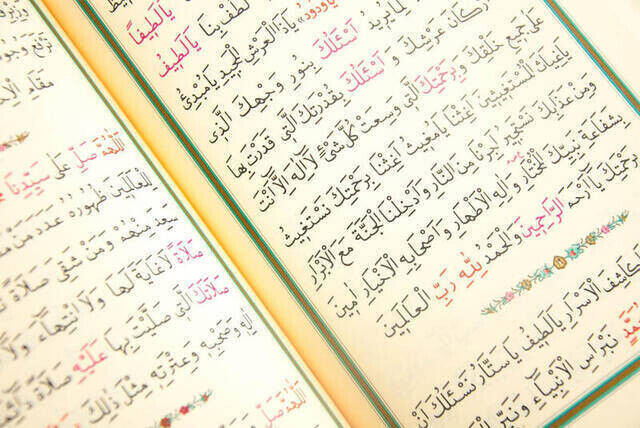 يَالَطِيفًا
يَالَطِيفُ
يَاوَدُودُ» يَاذَا الْعَرْشِ الْمَجِيدِ يَامُبْدِئُ
لِمَا يُرِيدُ اَسْئَلُكَ بِنُورِ وَجْهِكَ الَّذِى
اَرْكَانَ عَرْشِكَ وَ اَسْئَلُكَ بِقُدْرَتِكَ الَّتِى قَدَرْتَ بِهَا
عَلَى جَمِيعِ خَلْقِكَ وَبِرَحْمَتِكَ الَّتِى وَسِعَتْ كُلَّ شَىْءٍ لَا اِلٰهَ اِلَّا اَنْتَ
يَاغِيَاثَ الْمُسْتَغِيثِينَ اَغِثْنَا يَامُغِيثُ اَغِثْنَا بِرَحْمَتِكَ نَسْتَغِيثُ
وَمِنْ عَذَابِكَ نَسْتَجِيرُ اَجِرْنَا مِنَ النَّارِ وَاَدْخِلْنَا الْجَنَّةَ مَعَ الْاَبْرَارِ
بِشَفَاعَةِ نَبِيِّكَ الْمُخْتَارِ وَاٰلِهِ الْاَطْهَارِ وَاَصْحَابِهِ الْاَخْيَارِ اٰمِينَ
بِرَحْمَتِكَ يَا اَرْحَمَ الرَّاحِمِينَ وَالْحَمْدُ لِلّٰهِ رَبِّ الْعَالَمِينَ
الْاَسْرَارِ يَالَطِيفُ يَاسَتَّارُ نَسْئَلُكَ اَنْ
نِبْرَاسِ الْاَنْبِيَاءِ وَنَيِّرِ
اَللّٰهُمَّ صَلِّ عَلَى سَيِّدِنَا
الْعَالَمِينَ ظُهُورُهُ عَدَدَ مَنْ
سَعِدَ مِنْهُمْ وَمَنْ شَقِىَ صَلَاةً
صَلَاةً لَا غَايَةَ لَهَا وَلَا انْتِهَاءَ وَلَا
صَلَاتَكَ الَّتِى صَلَّيْتَ بِهَا عَلَيْهِ صَلَاةً
اٰلِهِ وَصَحْبِهِ وَعِتْرَتِهِ مِثْلَ ذٰلِكَ
اَللّٰهُمَّ صَلِّ